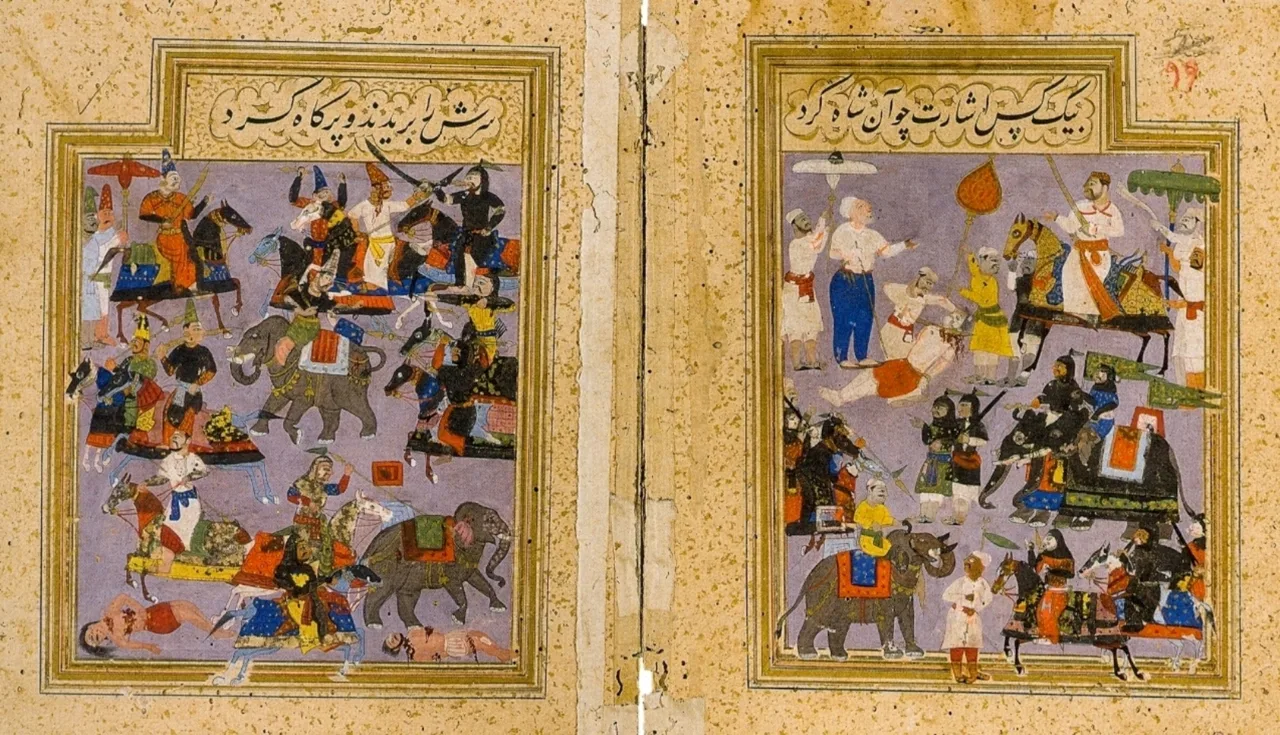 ۹۹
بیک کس اشارت چو آن شاه کرد
سرش را بریدند و پر کاه کرد